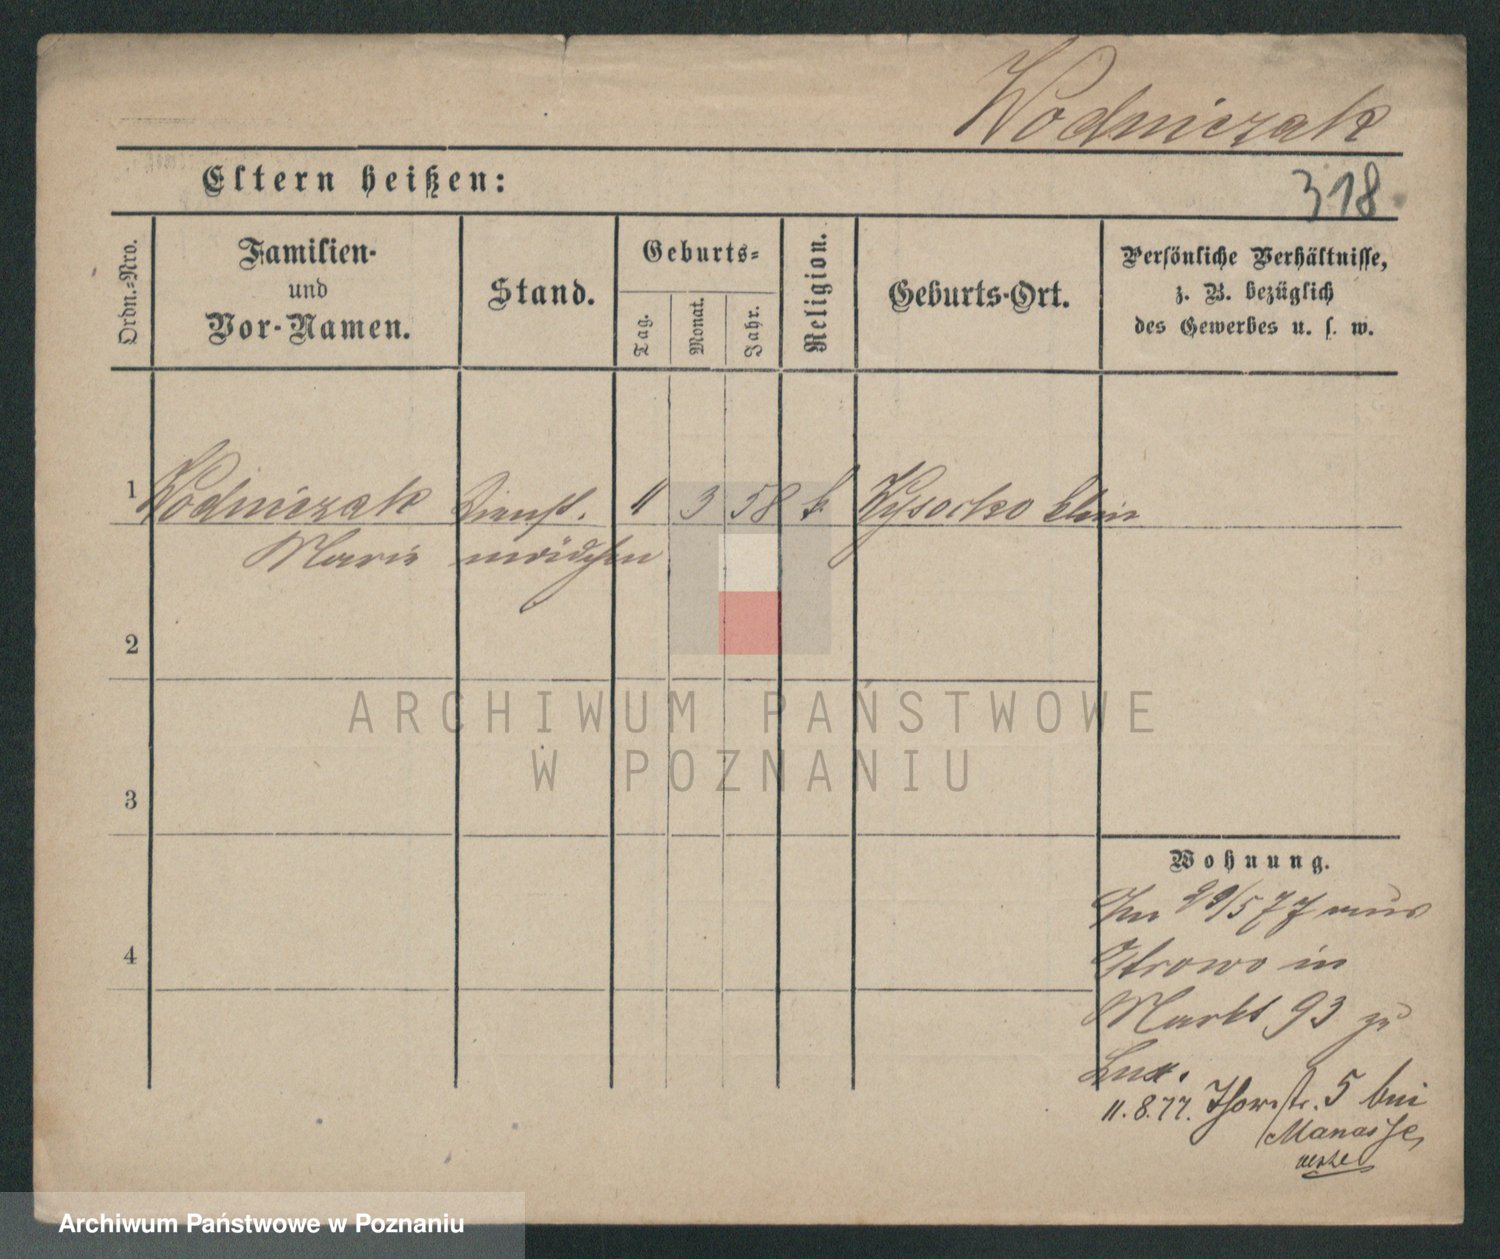 Wodniczak
Eltern heißen:
318
Ordn.-Nro.
Familien-
und
Vor-Namen.
Stand.
Geburts-
Tag.
Monat.
Jahr.
Religion.
Geburts-Ort.
Persönliche Verhältnisse,
z. B. bezüglich
des Gewerbes u. s. w.
1 Wodniczak Dienst. 11 3 58 k. Wysocko klein
Marie mädchen
2
3
4
Wohnung.
29/5 77 aus
Ostrowo in
Markt 93 zu
11.8.77. Thorstr. 5 bei
Manasse,
ARCHIWUM PAŃSTWOWE
W POZNANIU
Archiwum Państwowe w Poznaniu